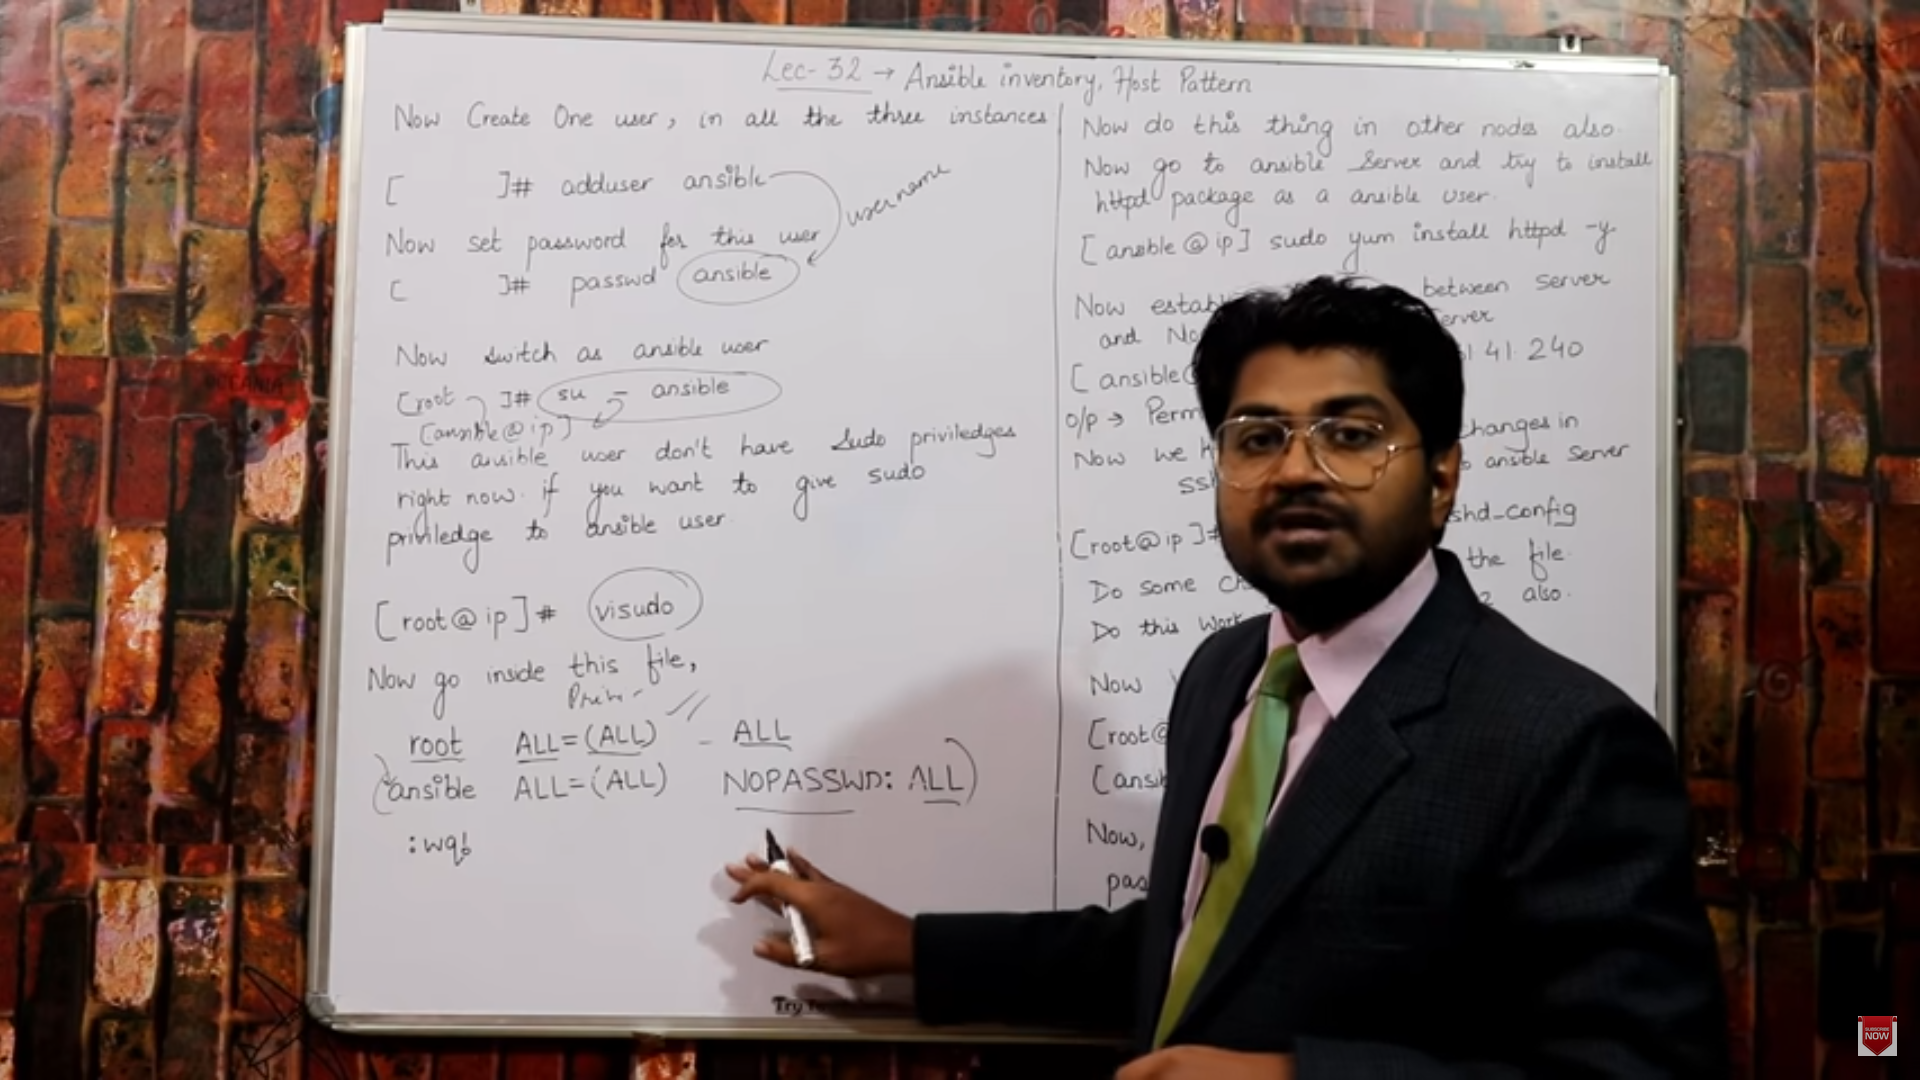 Lec-32 → Ansible inventory, Host Pattern
Now Create One user, in all the three instances
[ ]# adduser ansible
username
Now set password for this user
[ ]# passwd ansible
Now switch as ansible user
[root ]# su - ansible
[ansible@ip]
This ansible user don't have sudo priviledges
right now. if you want to give sudo
priviledge to ansible user.
[root@ip]# visudo
Now go inside this file,
root ALL=(ALL) - ALL
ansible ALL=(ALL) NOPASSWD: ALL
:wq!
Now do this thing in other nodes also.
Now go to ansible Server and try to install
httpd package as a ansible user.
[ansble@ip] sudo yum install httpd -y
Now between Server
and
41.240
[ansible@
o/p →
Now we changes in
ansible Server
[root@ip]# shd_config
Do some the file.
Do this Work also.
Now
[root@
[ansi
Now,
pas
Try
SUBSCRIBE
NOW